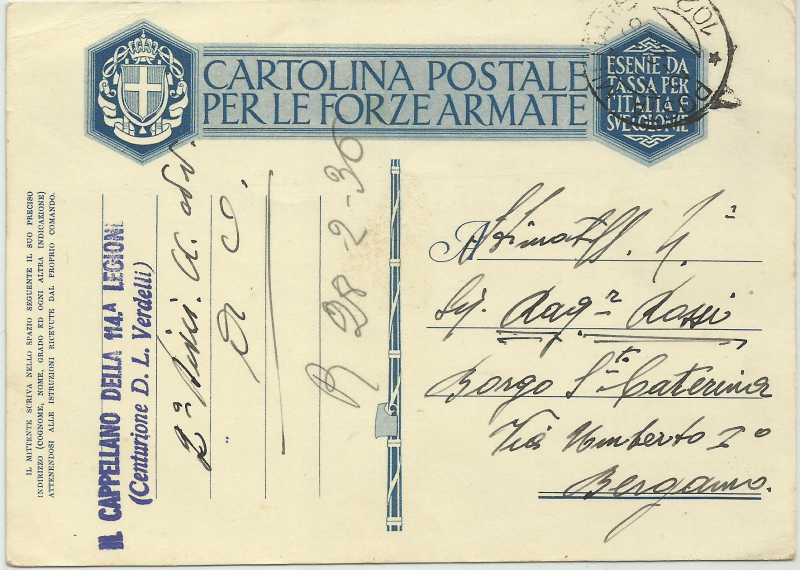 CARTOLINA POSTALE
PER LE FORZE ARMATE
ESENTE DA
TASSA PER
L'ITALIA E
SVE COLONIE
IL MITTENTE SCRIVA NELLO SPAZIO SEGUENTE IL SUO PRECISO
INDIRIZZO (COGNOME, NOME, GRADO ED OGNI ALTRA INDICAZIONE)
ATTENENDOSI ALLE ISTRUZIONI RICEVUTE DAL PROPRIO COMANDO.
IL CAPPELLANO DELLA 114.A LEGIONE
(Centurione D. L. Verdelli)
2ª
A. O.
R 28-2-36
A
Sig. Rag.r Rossi
Borgo Sta Caterina
Via Umberto Iº
Bergamo.
102